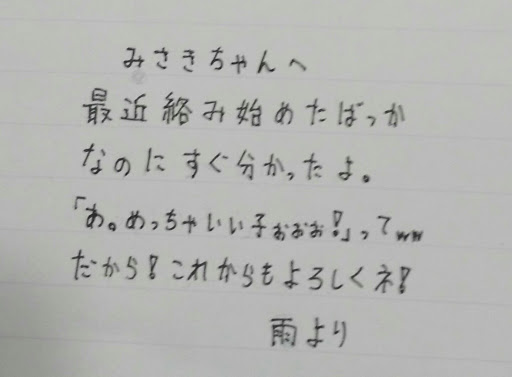 みさきちゃんへ
最近絡み始めたばっか
なのにすぐ分かったよ。
「あ。めっちゃいい子ぉぉぉ!」ってww
だから!これからもよろしくネ!
雨より